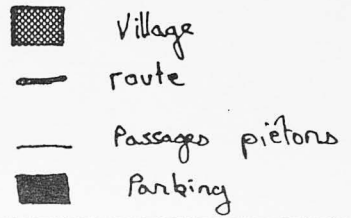 Village
route
Passages piétons
Parking